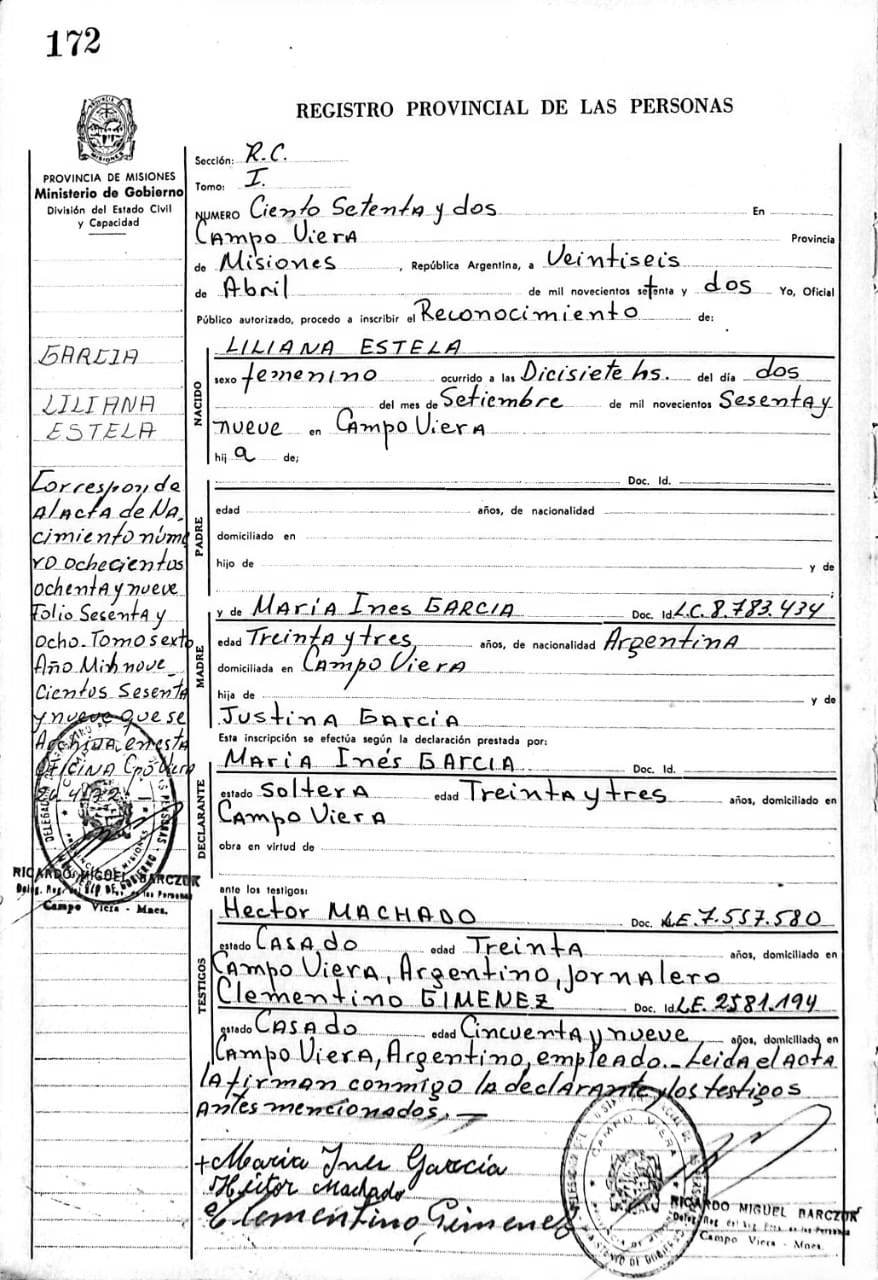 172
REGISTRO PROVINCIAL DE LAS PERSONAS
PROVINCIA DE MISIONES
Ministerio de Gobierno
División del Estado Civil
y Capacidad
Sección: R.C.
Tomo: I.
NUMERO Ciento Setenta y dos En
Campo Viera Provincia
de Misiones, República Argentina, a Veintiseis
de Abril de mil novecientos setenta y dos Yo, Oficial
Público autorizado, procedo a inscribir el Reconocimiento de:
GARCIA
LILIANA
ESTELA
Corresponde
al acta de Na,
cimiento núme
ro ochecientos
ochenta y nueve
Folio Sesenta y
ocho. Tomo sexto
Año Mil nove
cientos Sesenta
y nueve que se
Archiva en esta
oficina Cpo Viera
RICARDO MIGUEL BARCZUK
Campo Viera - Mnes.
NACIDO
LILIANA ESTELA
sexo femenino ocurrido a las Dicisiete hs. del día dos
del mes de Setiembre de mil novecientos Sesenta y
nueve en Campo Viera
hij a de;
Doc. Id.
PADRE
edad años, de nacionalidad
domiciliado en
hijo de y de
;
MADRE
y de Maria Ines GARCIA Doc. Id. L.C. 8.783.434
edad Treinta y tres años, de nacionalidad Argentina
domiciliada en Campo Viera
hija de y de
Justina Garcia
Esta inscripción se efectúa según la declaración prestada por:
DECLARANTE
Maria Inés GARCIA Doc. Id.
estado Soltera edad Treinta y tres años, domiciliado en
Campo Viera
obra en virtud de
ante los testigos:
TESTIGOS
Hector MACHADO Doc. LE. 7.557.580
estado Casado edad Treinta años, domiciliado en
Campo Viera, Argentino, Jornalero
Clementino GIMENEZ Doc. Id. LE. 2581.194
estado Casado edad Cincuenta y nueve años, domiciliado en
Campo Viera, Argentino, empleado.- Leida el Acta
la firman conmigo la declarante y los testigos
Antes mencionados.—
+Maria Ines Garcia
Hector Machado
Clementino Gimenez
CAMPO VIERA
RICARDO MIGUEL BARCZUK
Deleg. Reg. del Reg. Prov. de las Personas
Campo Viera - Mnes.